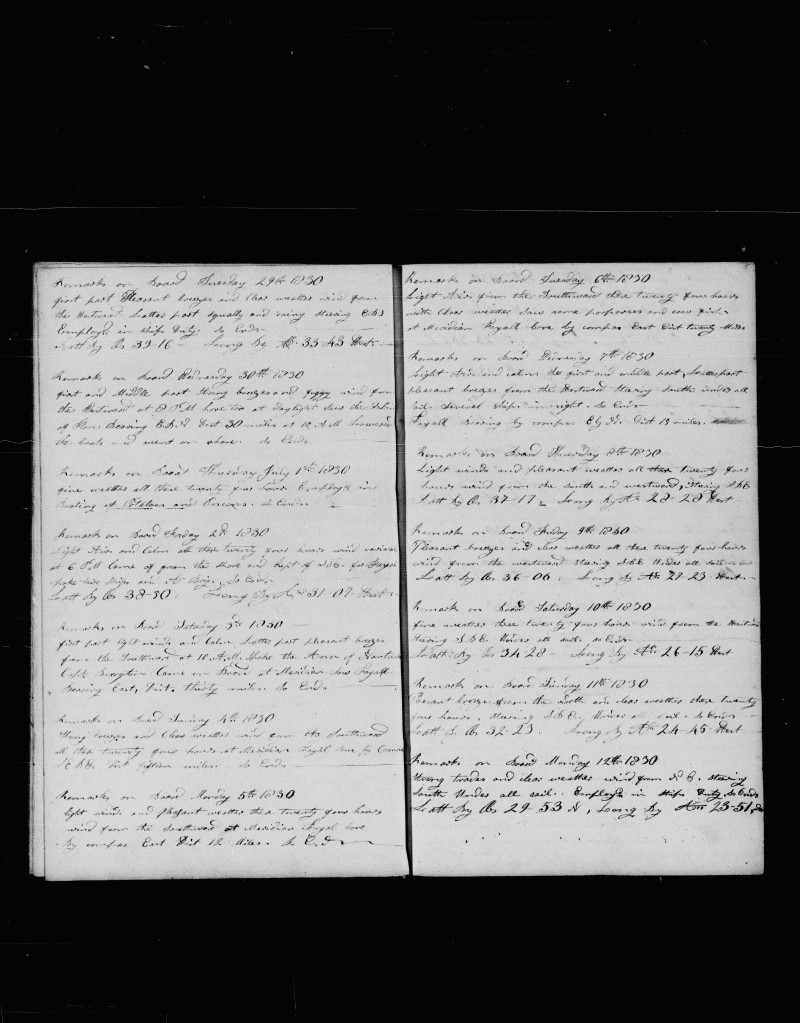 Remarks on Board Tuesday 29th 1830
first part Pleasant breezes and Clear weather wind from
the Westward Latter part squally and rainy Stearing EBS
Employ'd in ships Duty. So Ends
Latt By Os 39-16 Long By Ar 33-43 West
Remarks on Board Wednesday 30th 1830
first and Middle part Strong breezes and foggy wind from
the Westward at 8 PM hove too at daylight Saw the
Bearing E.B.N Dist 30 miles at 10 A.M Lowered
the boats and went on shore. So Ends
Remarks on Board Thursday July 1st 1830
fine weather all these twenty four hours Employ'd in
Boating of Potatoes and Onions. So Ends
Remarks on Board Friday 2d 1830
Light Airs and Calm all these twenty four hours wind
at 6 P.M Came of from the Shore and Kept of S.S.E. for Fayal
two Ships and A Brig. So Ends
Latt By Os 38-50. Long By Ar 31-07 West
Remarks on Board Saturday 3d 1830
first part light winds and Calm Latter part pleasant breezes
from the Southward at 10 A.M. Spoke the Acorn of
Capt Came on Board at Meridian Saw Fayall
Bearing East, Dist. thirty miles So Ends
Remarks on Board Sunday 4th 1830
Strong breezes and Clear weather wind from the Southward
all these twenty four hours at Meridian Fayal bore by Compass
Dist fifteen miles So Ends
Remarks on Board Monday 5th 1830
light winds and pleasant weather these twenty four hours
wind from the Southward at Meridian Fayal bore
By compas East Dist 12 Miles. So E
Remarks on Board Tuesday 6th 1830
Light Airs from the Southward these twenty four hours
with Clear weather Saw some porpoises and cow fish
at Meridian Fayall bore by compas East Dist twenty Miles
Remarks on Board Wednesday 7th 1830
Light Airs and calm the first and middle part, Latter part
pleasant breezes from the Westward Stearing South under all
sail, Several Ships in sight. So Ends
Fayall Bearing by compas E by N. Dist 13 miles.
Remarks on Board Thursday 8th 1830
Light winds and pleasant weather all these twenty four
hours wind from the south and westward, Stearing SBE
Latt By Os 37-17 Long By Ar 28-28 West
Remarks on Board Friday 9th 1830
Pleasant breezes and clear weather all these twenty four hours
wind from the westward stearing S.B.E Under all sail
Latt By Os 36-06. Long By Ar 27-23 West
Remarks on Board Saturday 10th 1830
fine weather these twenty four hours wind from the Westward
stearing S.B.E. Under all sail. So Ends
Latt By Os 34 28 Long By Ar 26-15 West
Remarks on Board Sunday 11th 1830
Pleasant breezes from the north and clear weather these twenty
four hours, stearing S.B.E. Under all sail. So Ends
Latt By Os 32-23. Long By Ar 24-45 West
Remarks on Board Monday 12th 1830
Strong trades and clear weather wind from N E. stearing
South Under all sail. Employ'd in ships Duty So Ends
Latt By Os 29 53 N, Long By Ar 23-51